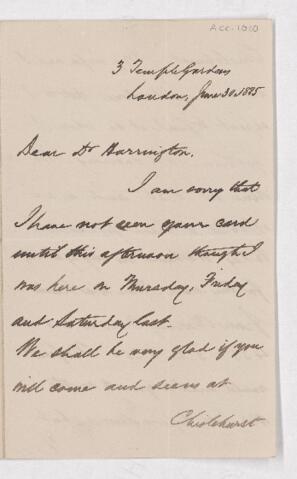 Acc. 1010
3 Temple Gardens
London, June 30. 1885
Dear Dr Harrington,
I am sorry that
I have not seen your card
until this afternoon though I
was here on Thursday, Friday
and Saturday last.
We shall be very glad if you
will come and see us at
Chislehurst